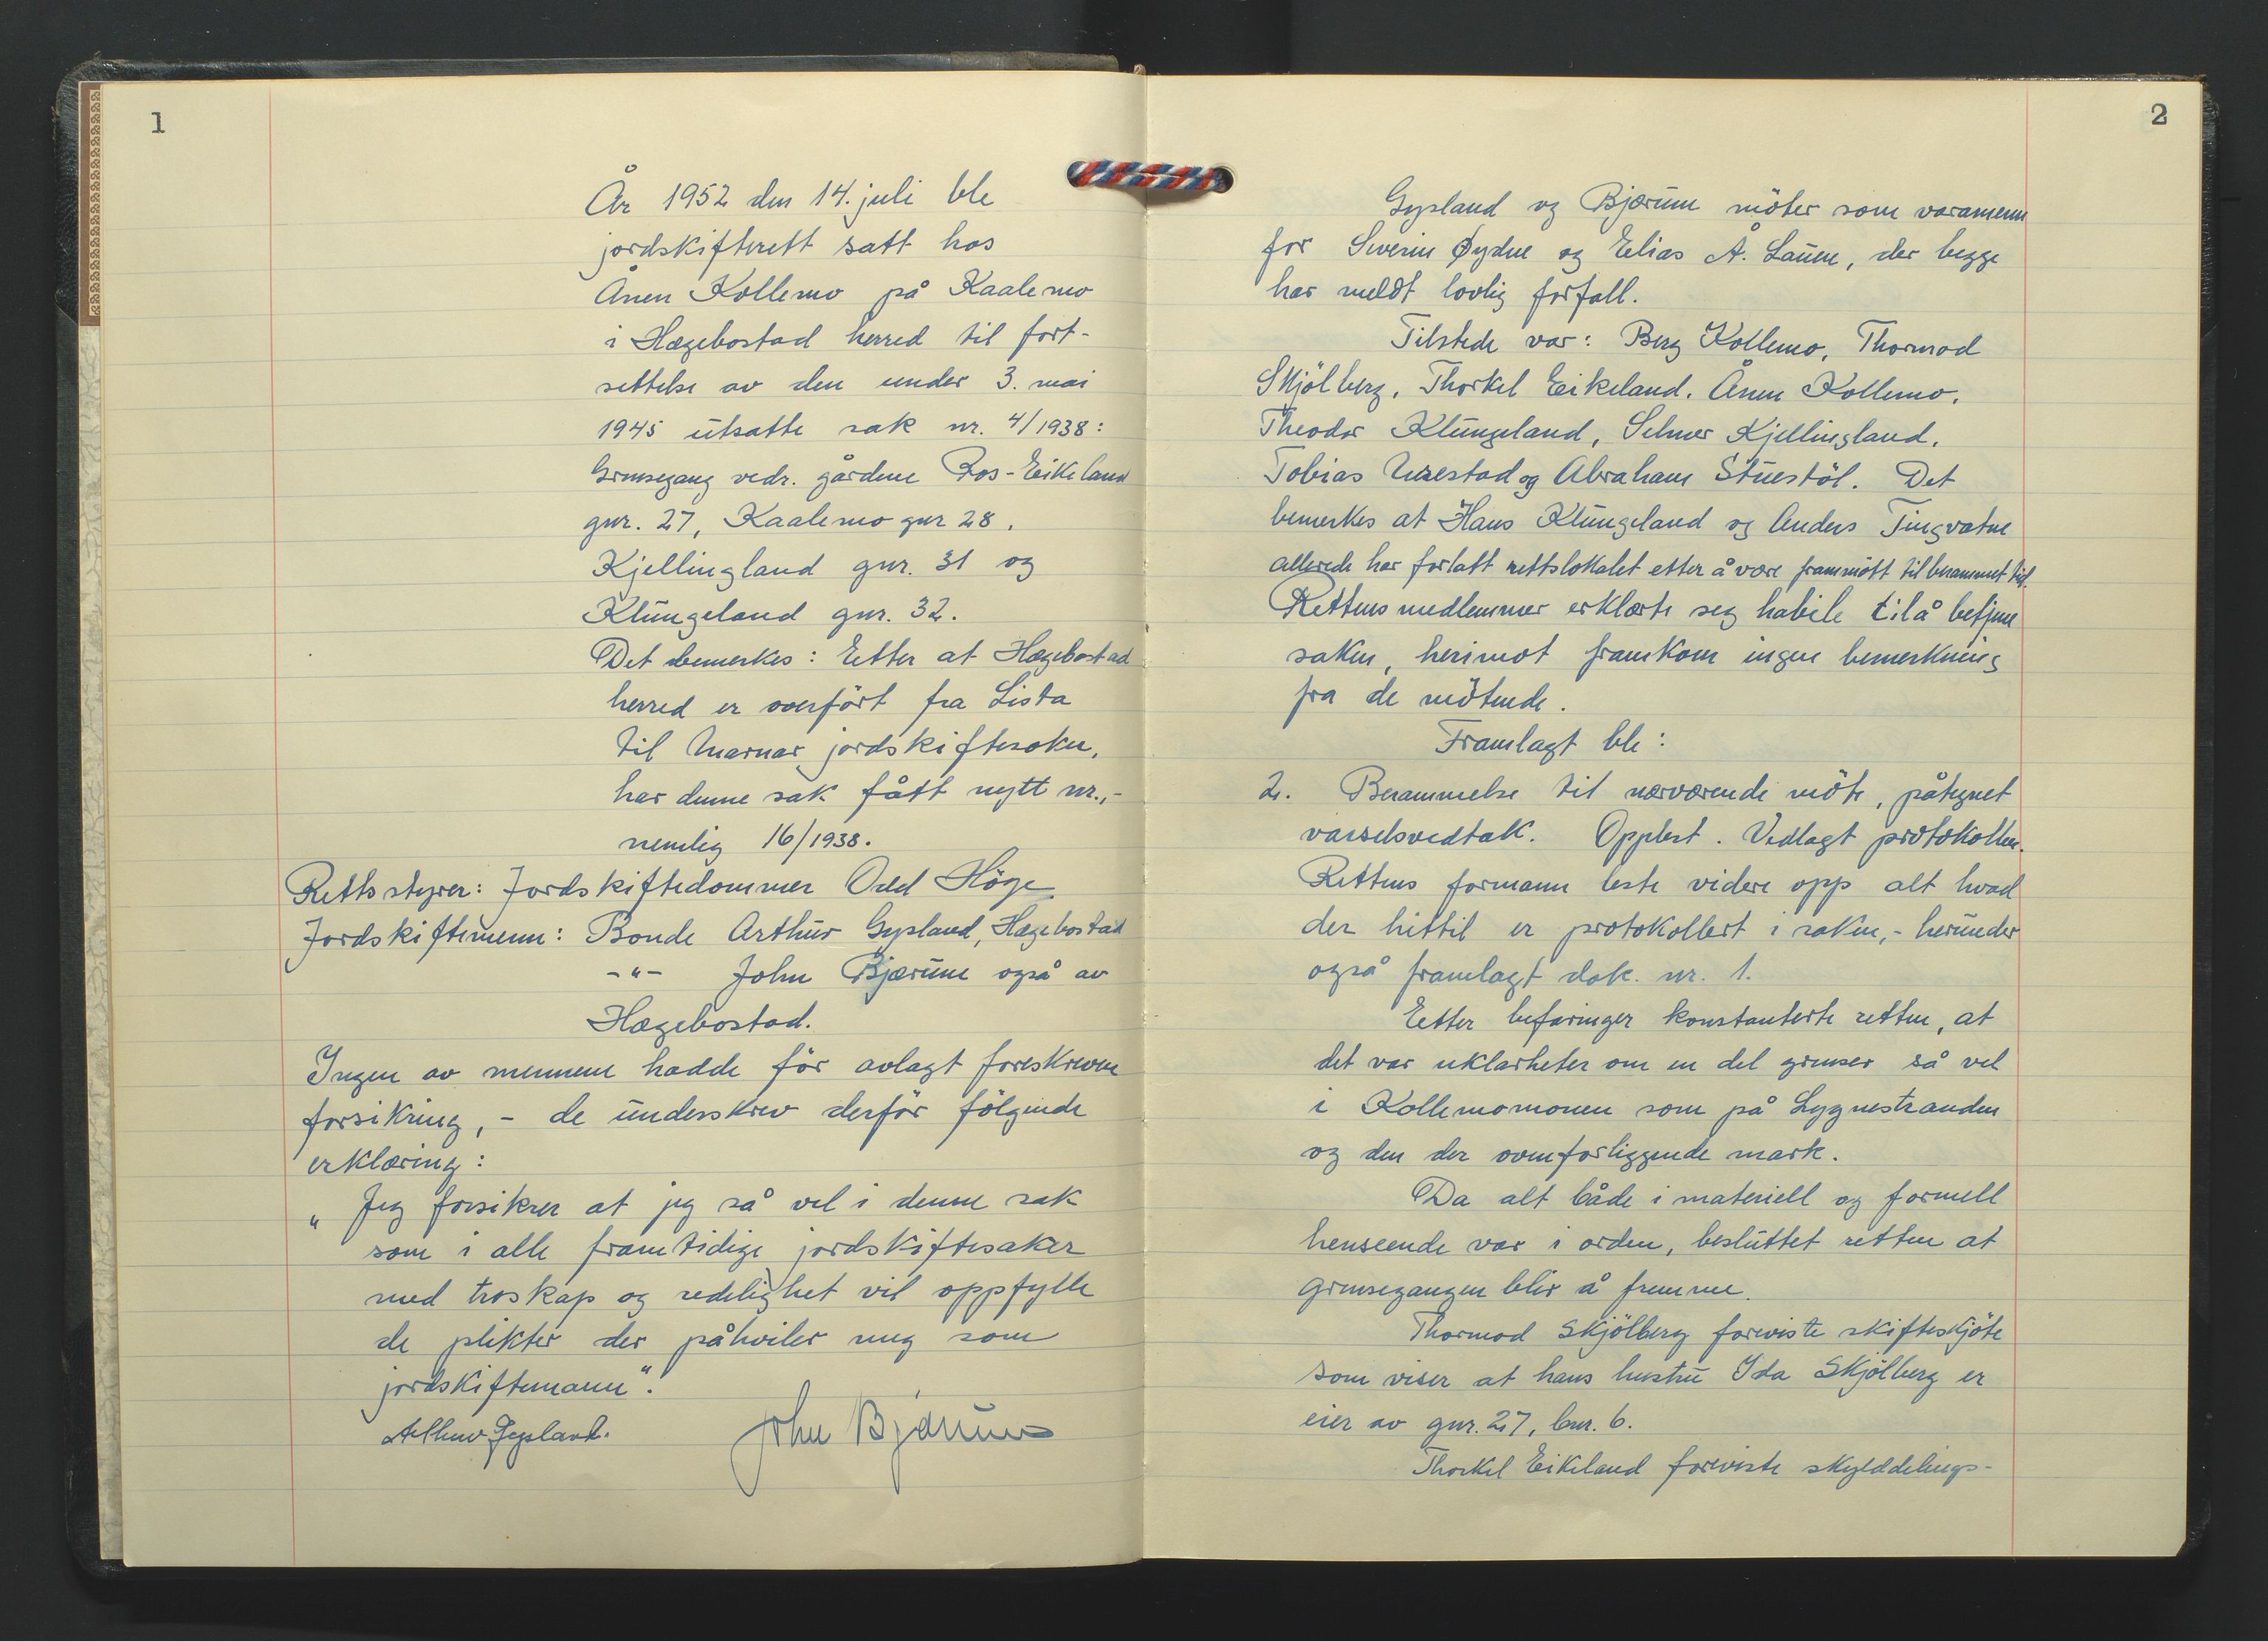 1
År 1952 den 14. juli ble
jordskifterett satt hos
Ånen Kollemo på Kaalemo
i Hægebostad herred til fort-
settelse av den under 3. mai
1945 utsatte sak nr. 4/1938:
Grensegang vedr. gårdene Ros-Eikeland
gnr. 27, Kaalemo gnr 28,
Kjellingland gnr. 31 og
Klungeland gnr. 32.
Det bemerkes: Etter at Hægebostad
herred er overfört fra Lista
til Marnar jordskiftesokn,
har denne sak fått nytt nr.,-
nemlig 16/1938.
Rettsstyrer: Jordskiftedommer Odd Höge
Jordskiftemenn: Bonde Arthur Gysland, Hægebostad
-"- John Bjærum også av
Hægebostad.
Ingen av mennene hadde för avlagt foreskreven
forsikring, - de underskrev derför fölgende
erklæring:
" Jeg forsikrer at jeg så vel i denne sak
som i alle framtidige jordskiftesaker
med troskap og redelighet vil oppfylle
de plikter der påhviler meg som
jordskiftemann".
Arthur Gysland. John Bjærum
2
Gysland og Bjærum möter som varamenn
for Severin Øydne og Elias Å. Lauen, der begge
har meldt lovlig forfall.
Tilstede var: Berg Kollemo, Thormod
Skjölberg, Thorkel Eikeland, Ånen Kollemo,
Theodor Klungeland, Selmer Kjellingland,
Tobias Urestad og Abraham Stuestöl. Det
bemerkes at Hans Klungeland og Anders Tingvatne
allerede har forlatt rettslokalet etter å være frammött til berammet tid.
Rettens medlemmer erklærte seg habile til å betjene
saken, herimot framkom ingen bemerkning
fra de mötende.
Framlagt ble:
2. Berammelse til nærværende möte, påtegnet
varselsvedtak. Opplest. Vedlagt protokollen.
Rettens formann leste videre opp alt hvad
der hittil er protokollert i saken,- herunder
også framlagt dok. nr. 1.
Etter befaringer konstanterte retten, at
det var uklarheter om en del grenser så vel
i Kollemomonen som på Lygnestranden
og den der ovenforliggende mark.
Da alt både i materiell og formell
henseende var i orden, besluttet retten at
grensegangen blir å fremme.
Thormod Skjölberg foreviste skifteskjöte
som viser at hans hustru Ida Skjölberg er
eier av gnr. 27, bnr. 6.
Thorkel Eikeland foreviste skylddelings-